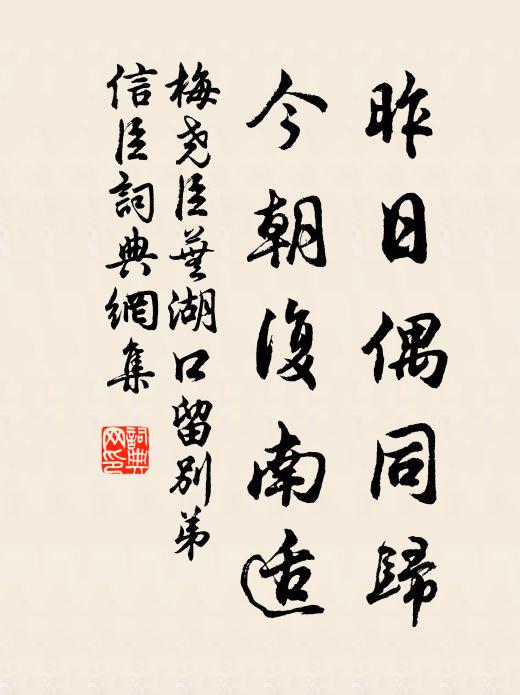 昨日偶同歸
今朝復南适
梅尧臣蕪湖口留别弟
信臣詞典網集
詞典网印